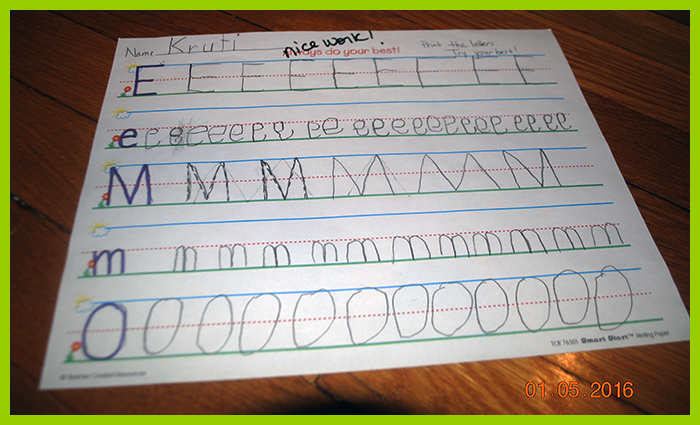 Name Kruti
nice work!
Always do your best!
Print the letters.
Try your best!
E E E E E E E E E
e e e e e e e e e e e e e e e e e e e e e e e
M M M M M M
m m m m m m m m m m m m
O O O O O O O O O O O O
© Teacher Created Resources
TCR 76501 Smart Start™ Writing Paper
01.05.2016